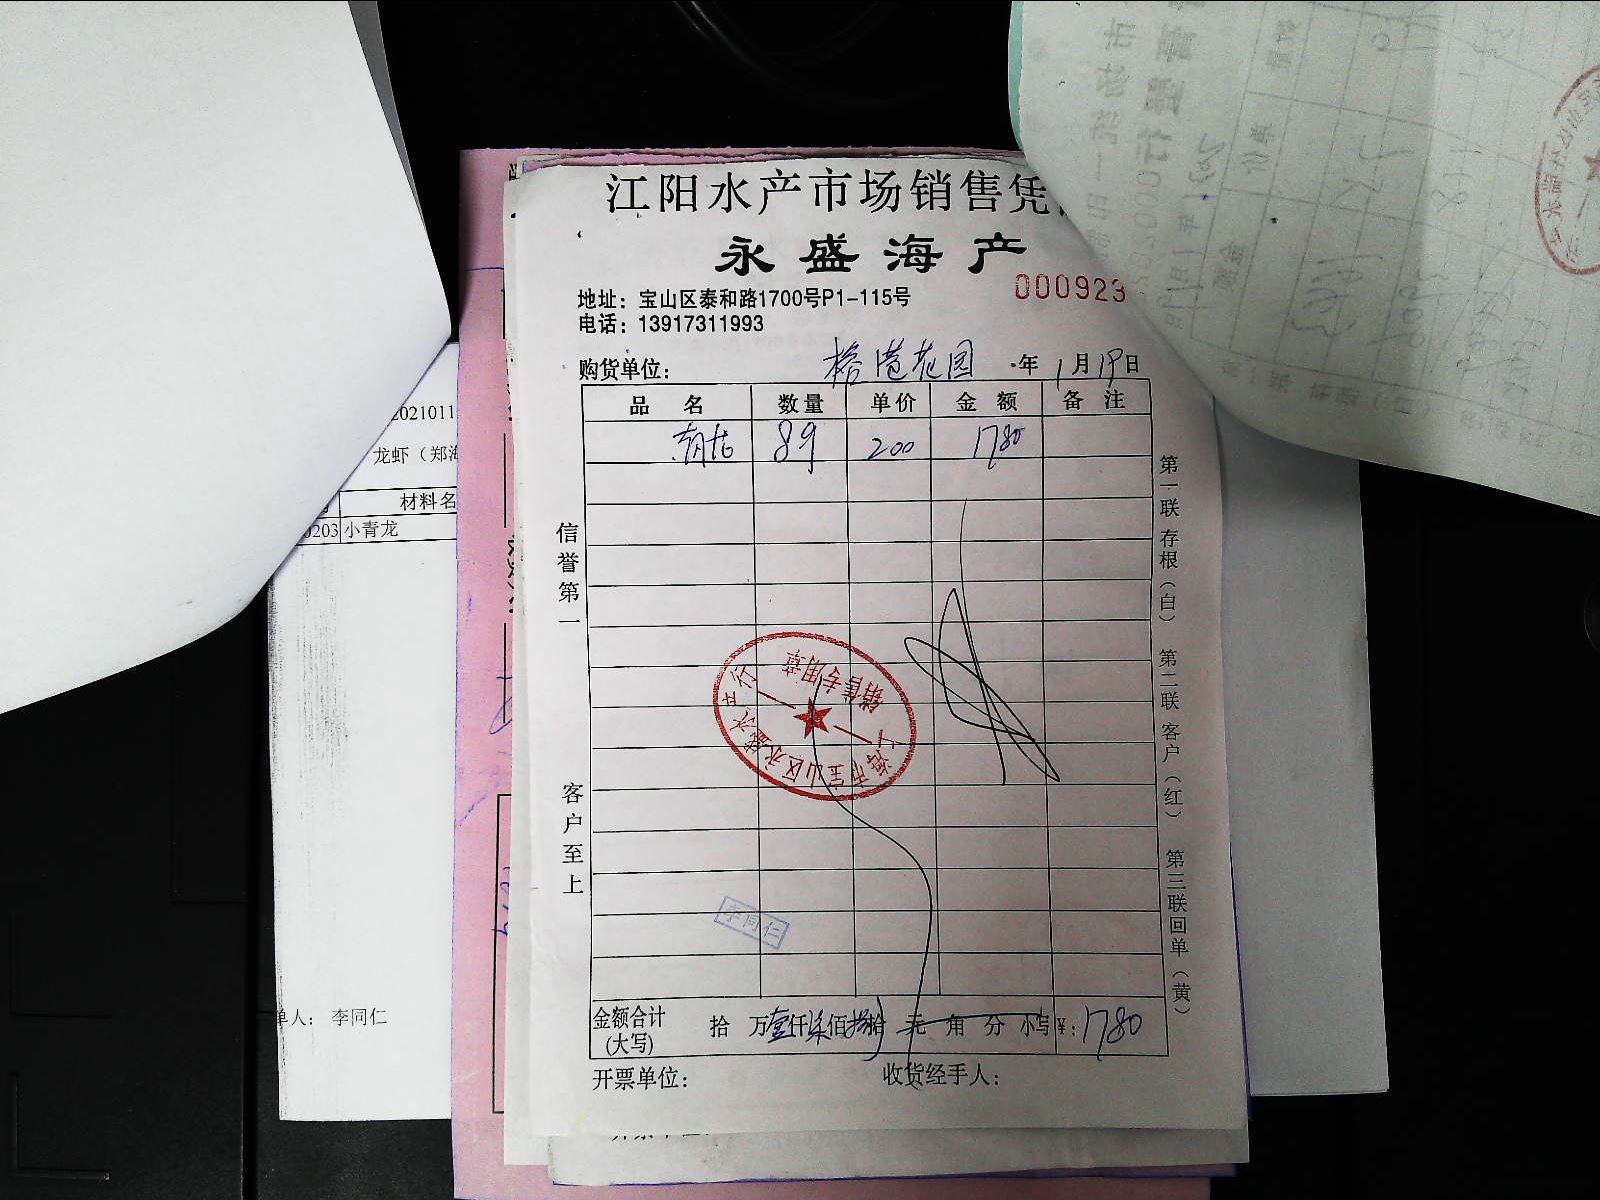 江阳水产市场销售凭
永盛海产
000923
地址：宝山区泰和路1700号P1-115号
电话：13917311993
购货单位： 榕港花园 年 1月19日
品 名 数量 单价 金 额 备 注
89 200 1780
信誉第一
客户至上
第一联存根（白） 第二联客户（红） 第三联回单（黄）
上海市宝山区永盛水产行
销售专用章
李同仁
金额合计
(大写)
拾 万壹仟柒佰捌拾 元 角 分 小写¥：1780
开票单位： 收货经手人：
2021011
龙虾（郑海
材料名
0203 小青龙
单人： 李同仁